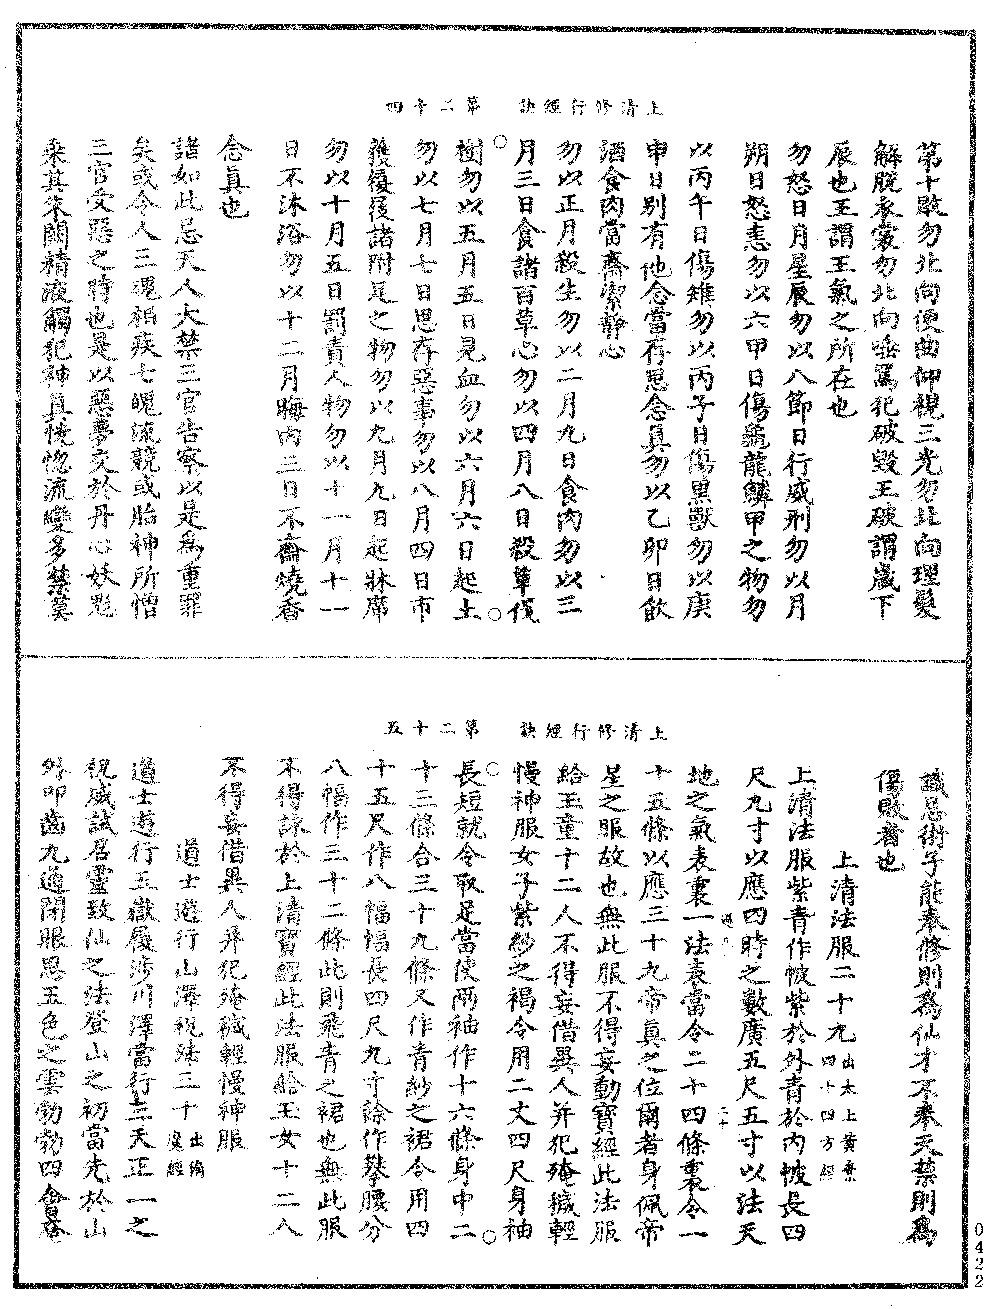 上清修行經訣　第二十四
第十敗勿北向便曲仰視三光勿北向理髮
解脫衣裳勿北向唾罵犯破毀王破謂歲下
辰也王謂王氣之所在也
勿怒日月星辰勿以八節日行威刑勿以月
朔日怒恚勿以六甲日傷龜龍鱗甲之物勿
以丙午日傷雉勿以丙子日傷黑獸勿以庚
申日別有他念當存思念真勿以乙卯日飲
酒食肉當齋潔靜心
勿以正月殺生勿以二月九日食肉勿以三
月三日食諸百草心勿以四月八日殺草伐
樹勿以五月五日見血勿以六月六日起土
勿以七月七日思存惡事勿以八月四日市
履屐諸附足之物勿以九月九日起牀席
勿以十月五日罰責人物勿以十一月十一
日不沐浴勿以十二月晦內三日不齋燒香
念真也
諸如此忌天人大禁三官告察以是為重罪
矣或令人三魂相疾七魄流競或胎神所憎
三官受惡之時也是以惡夢交於丹心妖鬼
乘其朱闕精液觸犯神真恍惚流變多禁莫
上清修行經訣　第二十五
識忌術子能奉修則為仙才不奉天禁則為
傷敗者也
上清法服二十九出太上黃素四十四方經
上清法服紫青作帔紫於外青於內帔長四
尺九寸以應四時之數廣五尺五寸以法天
地之氣表裏一法表當令二十四條裏令一
十五條以應三十九帝真之位爾者身佩帝
星之服故也無此服不得妄動寶經此法服
給玉童十二人不得妄借異人并犯殗穢輕
慢神服女子紫紗之褐令用二丈四尺身袖
長短就令取足當使兩袖作十六條身中二
十三條合三十九條又作青紗之裙令用四
十五尺作八幅幅長四尺九寸餘作攀腰分
八幅作三十二條此則飛青之裙也無此服
不得詠於上清寶經此法服給玉女十二人
不得妄借異人并犯殗穢輕慢神服
道士遊行山澤祝法三十出消魔經
道士遊行五嶽履涉川澤當行上天正一之
祝威試召靈致仙之法登山之初當先於山
外叩齒九通閉眼思五色之雲勃勃四會